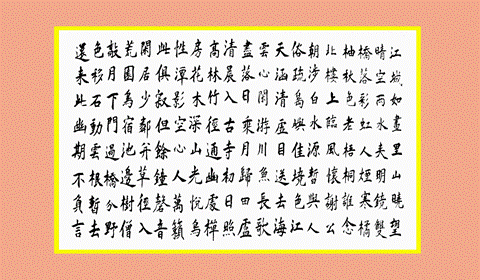 江城如畫里山曉望
晴空雨水夫明鏡雙
橋落彩虹人煙寒橘
柚秋色老梧桐誰念
北樓上臨風懷謝公
朝涉白水源暫與人
俗疏島嶼佳境色江
天涵清虛目送去海
雲心閑遊川魚長歌
盡落日乘月歸田盧
清晨入古寺初日照
高林竹徑通幽處禪
房花木深山光悅鳥
性潭影空心人萬籟
此俱寂但餘鐘磬音
閑居少鄰并草徑入
荒園鳥宿池邊樹僧
敲月下門過橋分野
色移石動雲根暫去
還來此幽期不負言